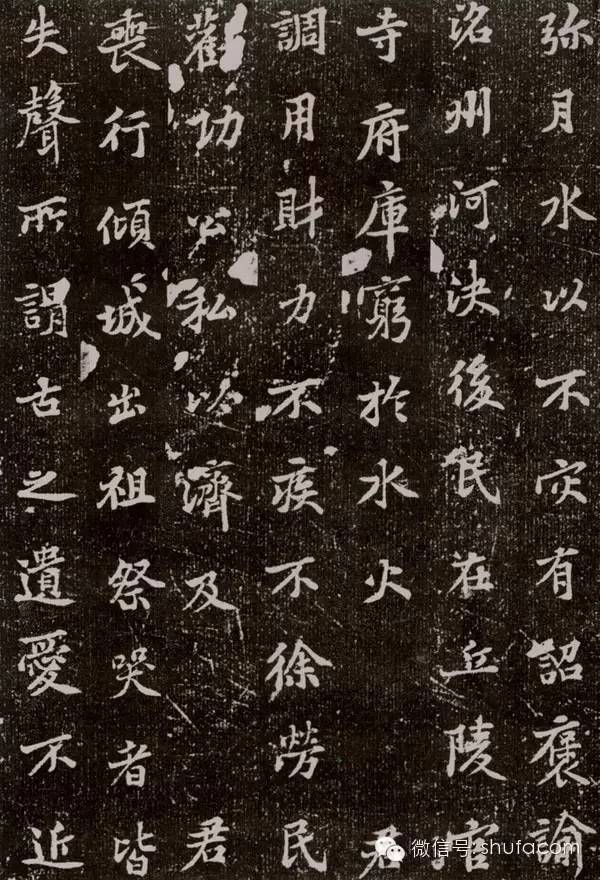 弥月水以不灾有詔褒諭
洺州河決後民在丘陵官
寺府庫窮於水火 君
調用財力不疾不徐勞民
勸功 公私以濟及 君
喪行傾城出祖祭哭者皆
失聲所謂古之遺愛不近
微信号: shufacom